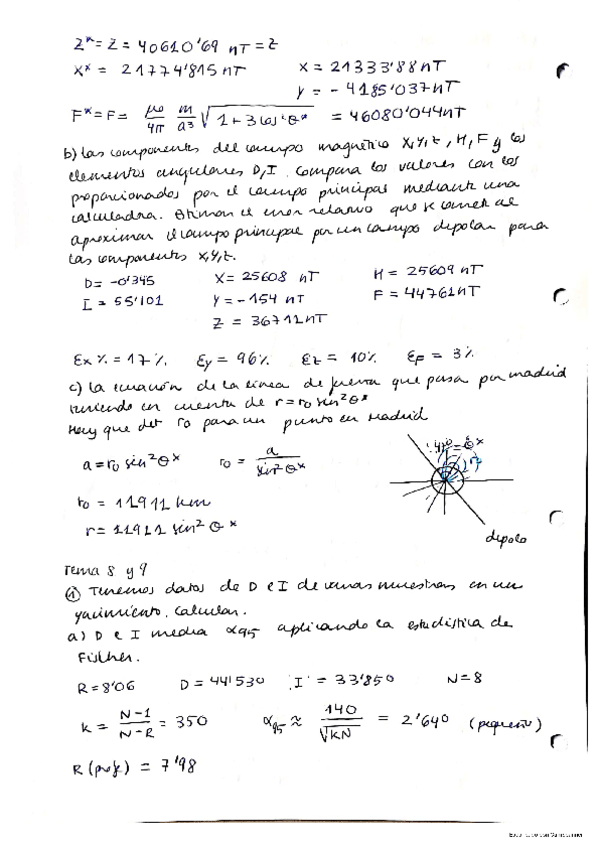 Z* = Z = 40610'69 nT = Z
X* = 21774'815 nT   X = 21333'88 nT
Y = - 4185'037 nT
F* = F = μ0/4π m/a³ √(1+3cos²θ*) = 46080'044 nT
b) Las componentes del campo magnético X,Y,Z, H, F y los
elementos angulares D, I. Compara los valores con los
proporcionados por el campo principal mediante una
calculadora. Estiman el error relativo que se comete al
aproximar el campo principal por un campo dipolar para
las componentes X,Y,Z.
D = -0'345   X = 25608 nT   H = 25609 nT
I = 55'101   Y = -154 nT   F = 44761 nT
Z = 36711 nT
Ex % = 17 %.   Ey = 96 %.   Ez = 10 %.   EF = 3 %
c) La ecuación de la línea de fuerza que pasa por madrid
teniendo en cuenta de r = r0 sin²θ*
Hay que det r0 para un punto en Madrid
a = r0 sin²θ*   r0 = a / sin²θ*
r0 = 11911 km
r = 11911 sin²θ*
dipolo
Tema 8 y 9
① Tenemos datos de D e I de varias muestras en un
yacimiento. Calcular.
a) D e I media α95 aplicando la estadística de
Fisher.
R = 8'06   D = 44'530   I = 33'850   N = 8
k = N-1 / N-R = 350   α95 ≈ 140 / √kN = 2'640 (pequeño)
R (prof) = 7'98